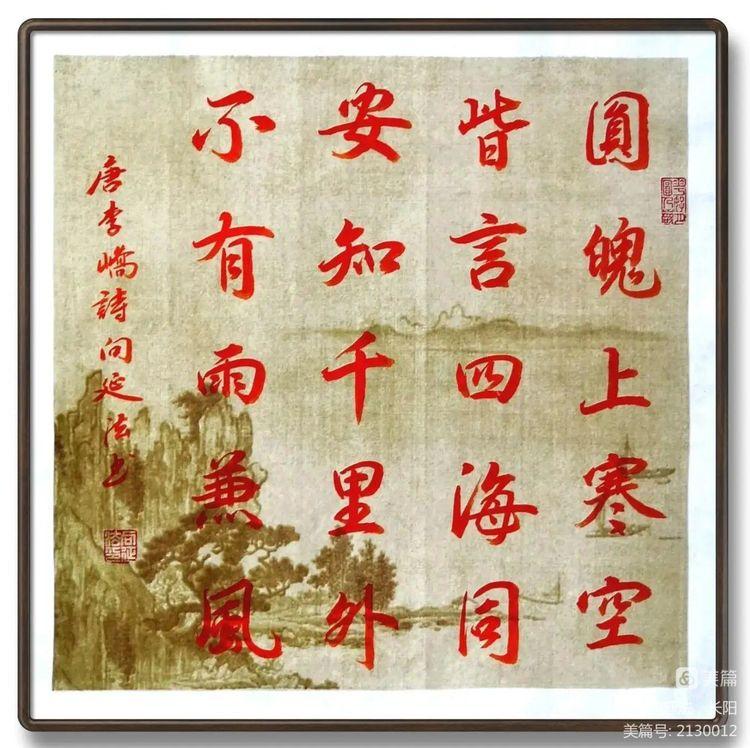 圓魄上寒空
皆言四海同
安知千里外
不有雨兼風
唐李嶠詩向延法书
美篇
长阳
美篇号: 2130012